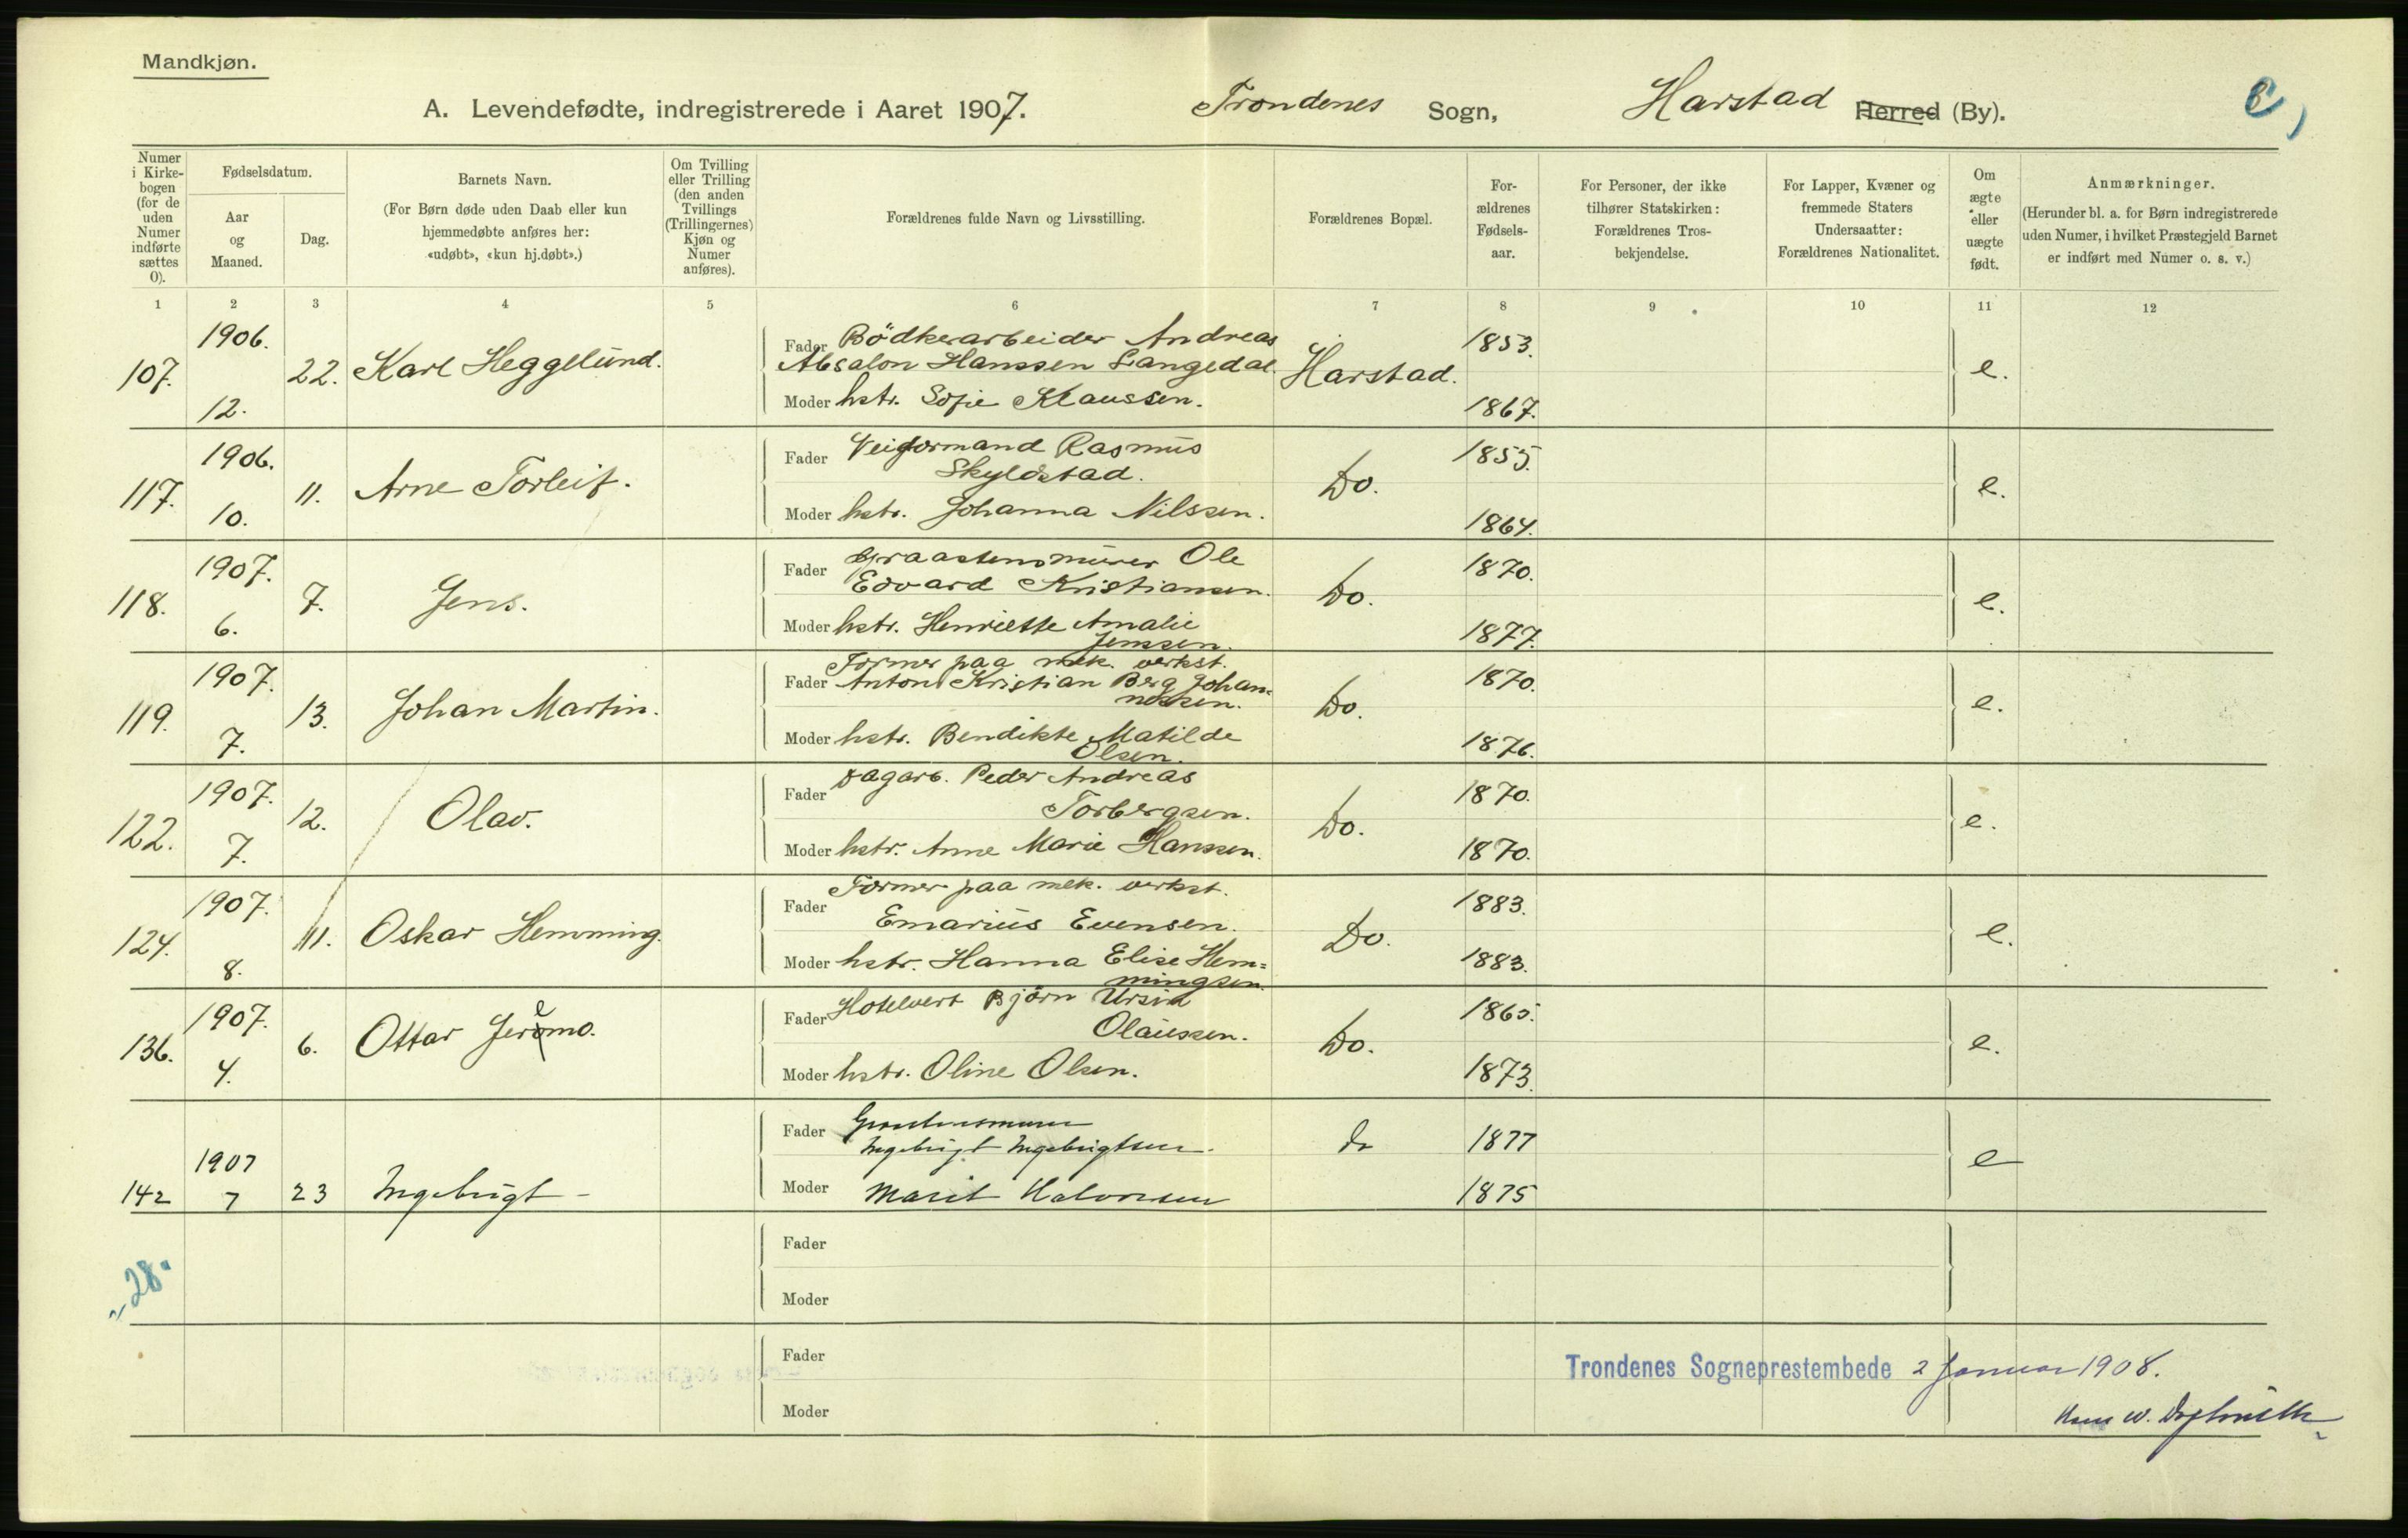 Mandkjøn.
A. Levendefødte, indregistrerede i Aaret 1907. Trondenes Sogn, Harstad Herred (By).
Numer i Kirkebogen (for de uden Numer indførte sættes 0).
Fødselsdatum.
Aar og Maaned.
Dag.
Barnets Navn.
(For Børn døde uden Daab eller kun hjemmedøbte anføres her: «udøbt», «kun hj.døbt».)
Om Tvilling eller Trilling (den anden Tvillings (Trillingernes) Kjøn og Numer anføres).
Forældrenes fulde Navn og Livsstilling.
Forældrenes Bopæl.
Forældrenes Fødselsaar.
For Personer, der ikke tilhører Statskirken: Forældrenes Trosbekjendelse.
For Lapper, Kvæner og fremmede Staters Undersaatter: Forældrenes Nationalitet.
Om ægte eller uægte født.
Anmærkninger.
(Herunder bl. a. for Børn indregistrerede uden Numer, i hvilket Præstegjeld Barnet er indført med Numer o. s. v.)
1 2 3 4 5 6 7 8 9 10 11 12
107. 1906. 12. 22. Karl Heggelund.
Fader Bödkerarbeider Andreas
Absalon Hanssen Langedal. Harstad. 1853. e.
Moder hstr. Sofie Klaussen. 1867.
117. 1906. 10. 11. Arne Torleif.
Fader Veiformand Rasmus
Skyldstad. Do. 1855. e.
Moder hstr. Johanna Nilssen. 1864.
118. 1907. 6. 7. Jens.
Fader Graastensmurer Ole
Edvard Kristiansen. Do. 1870. e.
Moder hstr. Henriette Amalie
Jenssen. 1877.
119. 1907. 7. 13. Johan Martin.
Former paa mek. verkst.
Fader Anton Kristian Berg Johan=
nessen. Do. 1870. e.
Moder hstr. Bendikte Matilde
Olsen. 1876.
122. 1907. 7. 12. Olav.
Fader Dagarb. Peder Andreas
Torbergsen. Do. 1870. e.
Moder hstr. Anne Marie Hanssen. 1870.
124. 1907. 8. 11. Oskar Hemming.
Fader Former paa mek. verkst.
Emarius Evensen. Do. 1883. e.
Moder hstr. Hanna Elise Hem=
mingsen. 1883.
136. 1907. 4. 6. Ottar Jeremo.
Fader Hotelvert Björn Ursin
Olaussen. Do. 1865. e.
Moder hstr. Oline Olsen. 1873.
142 1907 7 23 Ingebrigt -
Fader Graastensmurer
Ingebrigt Ingebrigtsen. do 1877 e
Moder Marit Halvorsen 1875
Fader
"28"
Moder
Fader
Trondenes Sogneprestembede 2 Januar 1908.
Moder
Hans W.